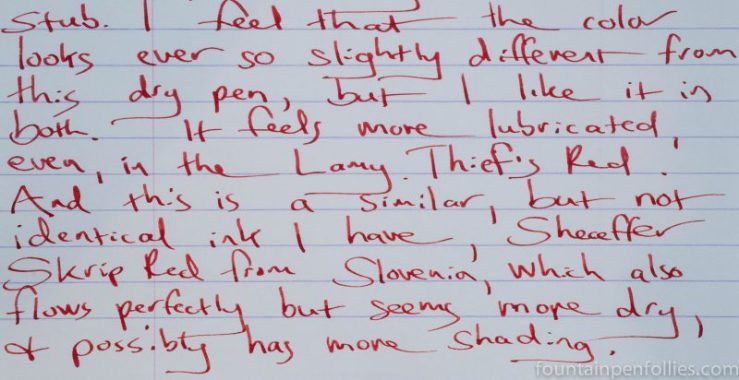 Stub. I feel that the color
looks ever so slightly different from
this dry pen, but I like it in
both. It feels more lubricated,
even, in the Lamy. Thief's Red!
And this is a similar, but not
identical ink I have, Sheaffer
Skrip Red from Slovenia, which also
flows perfectly but seems more dry,
& possibly has more shading.
fountainpenfollies.com